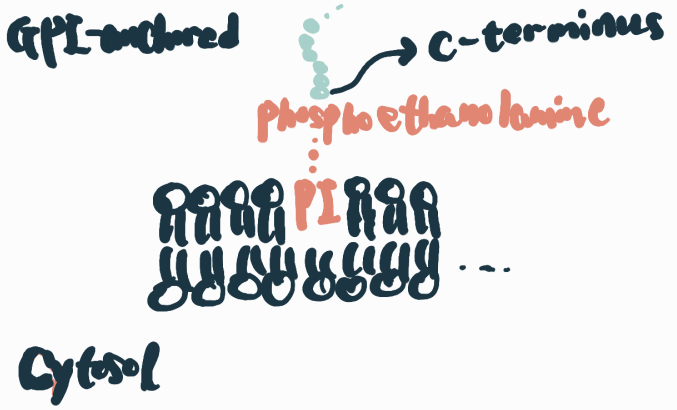 GPI-anchored
C-terminus
phosphoethanolamine
PI
Cytosol